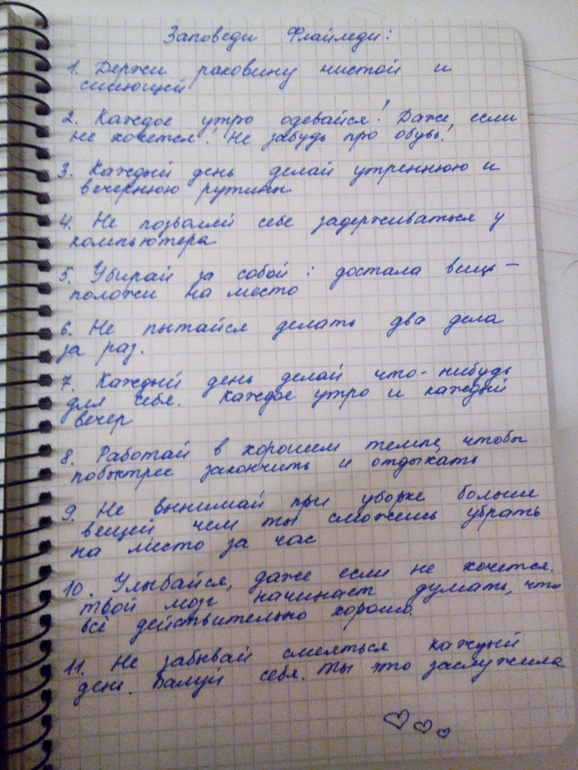 Заповеди Флайледи:
1. Держи раковину чистой и
сияющей
2. Каждое утро одевайся! Даже, если
не хочется! Не забудь про обувь!
3. Каждый день делай утреннюю и
вечернюю рутины
4. Не позволяй себе задерживаться у
компьютера
5. Убирай за собой: достала вещь –
положи на место
6. Не пытайся делать два дела
за раз.
7. Каждый день делай что-нибудь
для себя. Каждое утро и каждый
вечер
8. Работай в хорошем темпе, чтобы
побыстрее закончить и отдыхать
9. Не вынимай при уборке больше
вещей чем ты сможешь убрать
на место за час
10. Улыбайся, даже если не хочется.
твой мозг начинает думать, что
всё действительно хорошо.
11. Не забывай смеяться каждый
день. Балуй себя. Ты это заслужила